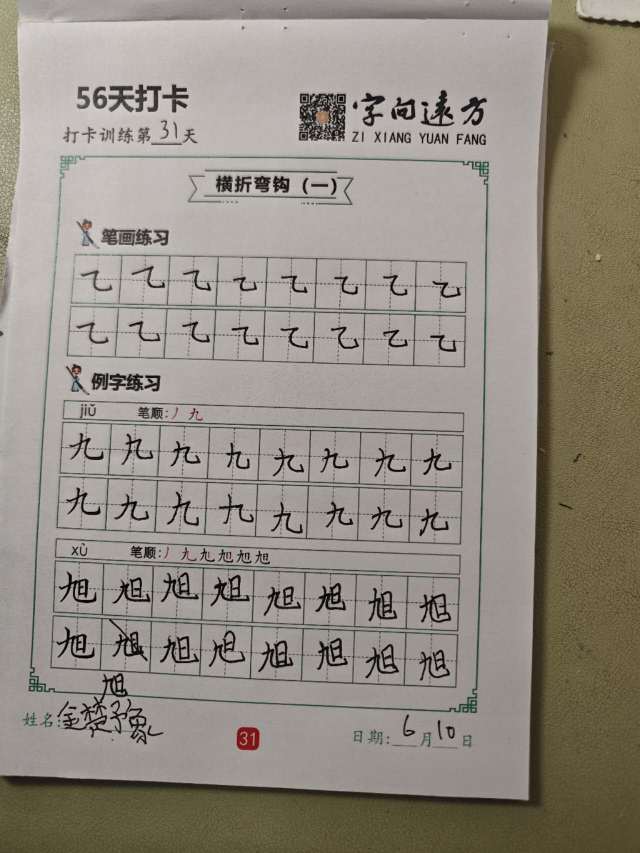 56天打卡
字向远方
打卡训练第31天
ZI XIANG YUAN FANG
横折弯钩（一）
笔画练习
乙 乙 乙 乙 乙 乙 乙 乙
乙 乙 乙 乙 乙 乙 乙 乙
例字练习
jiǔ 笔顺:丿九
九 九 九 九 九 九 九 九
九 九 九 九 九 九 九 九
xù 笔顺:丿九九旭旭旭
旭 旭 旭 旭 旭 旭 旭 旭
旭 旭 旭 旭 旭 旭 旭 旭
旭
姓名:金楚予豪
31
日期:6月10日